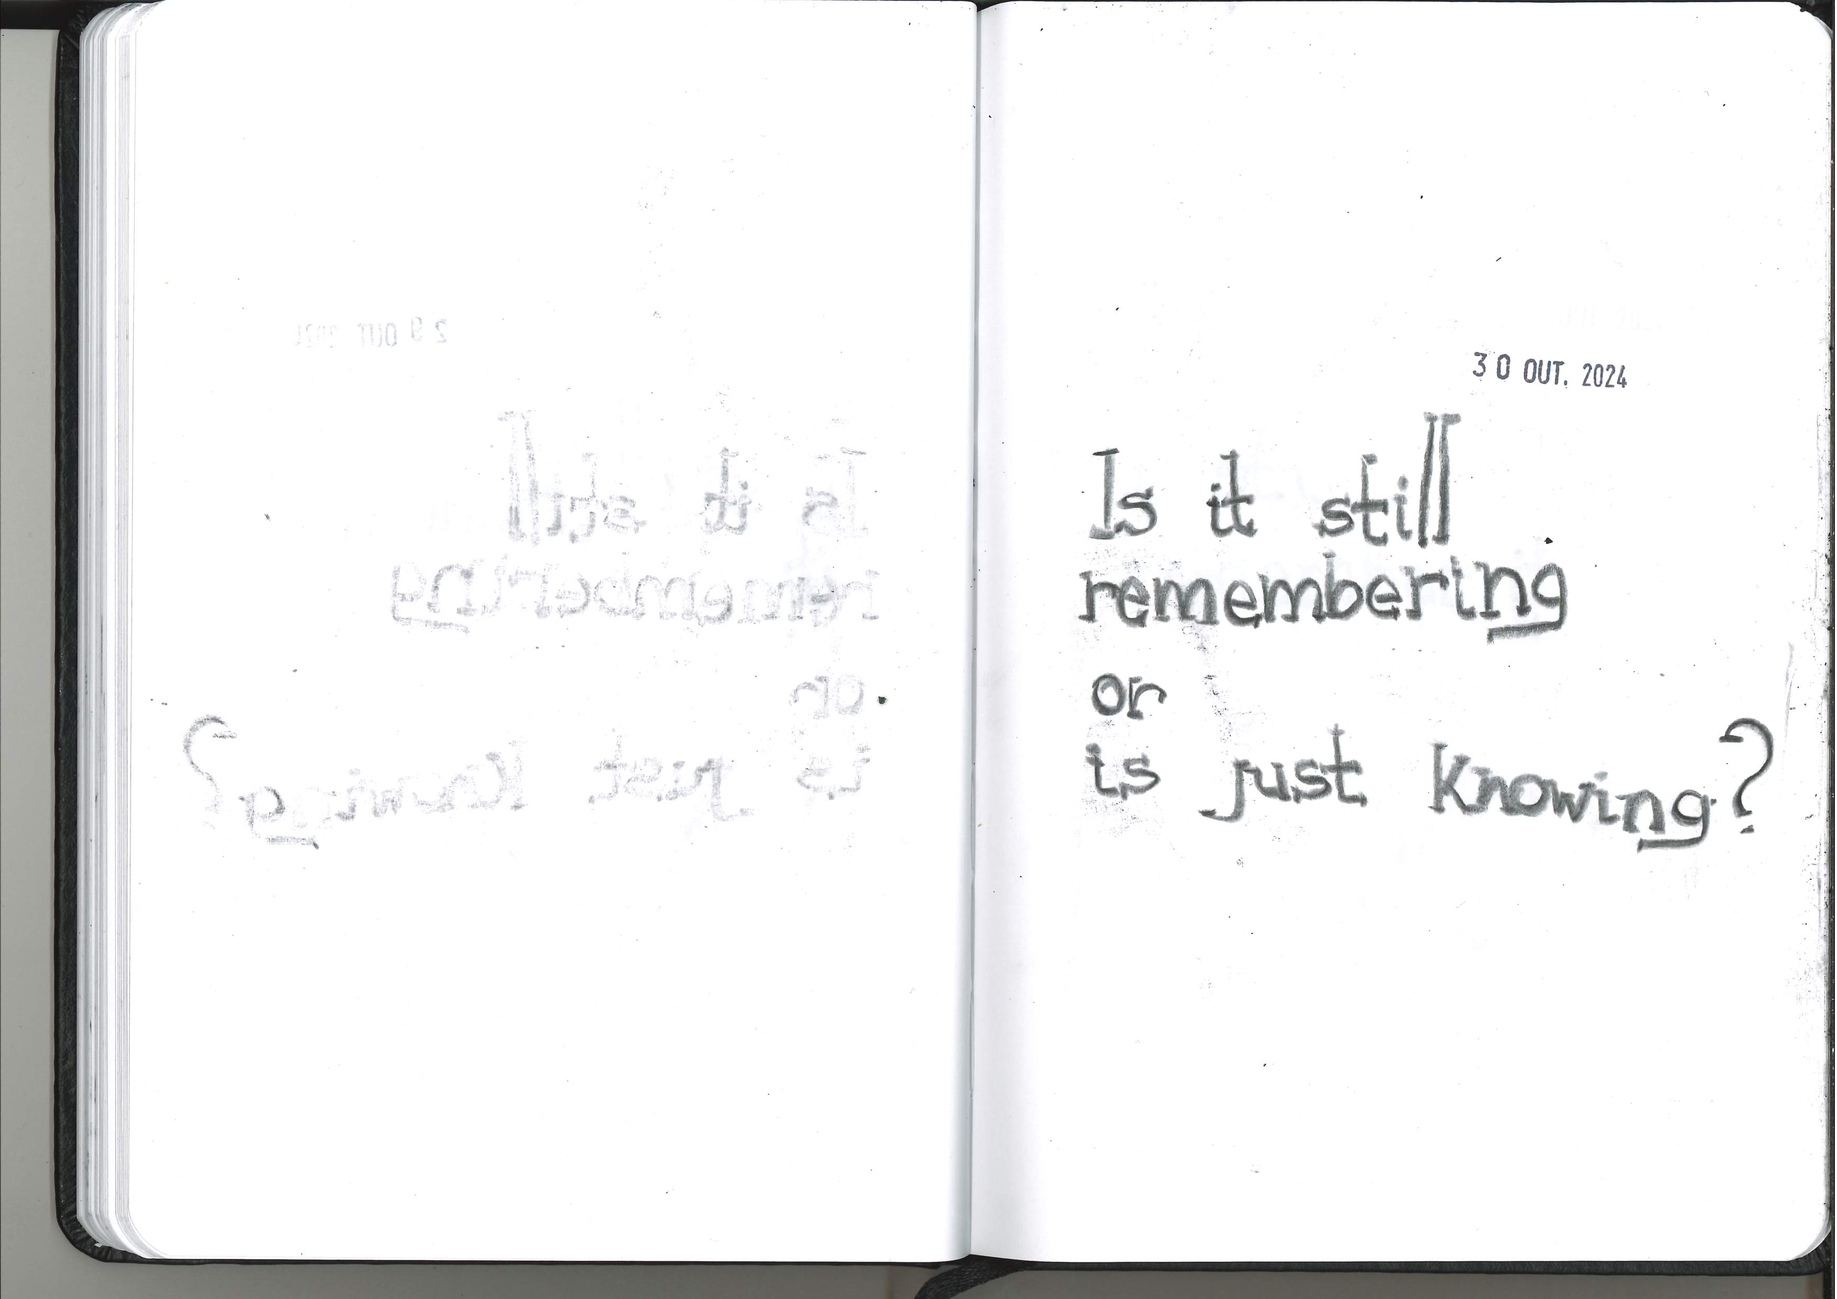 30 OUT. 2024
Is it still
remembering
or
is just knowing?